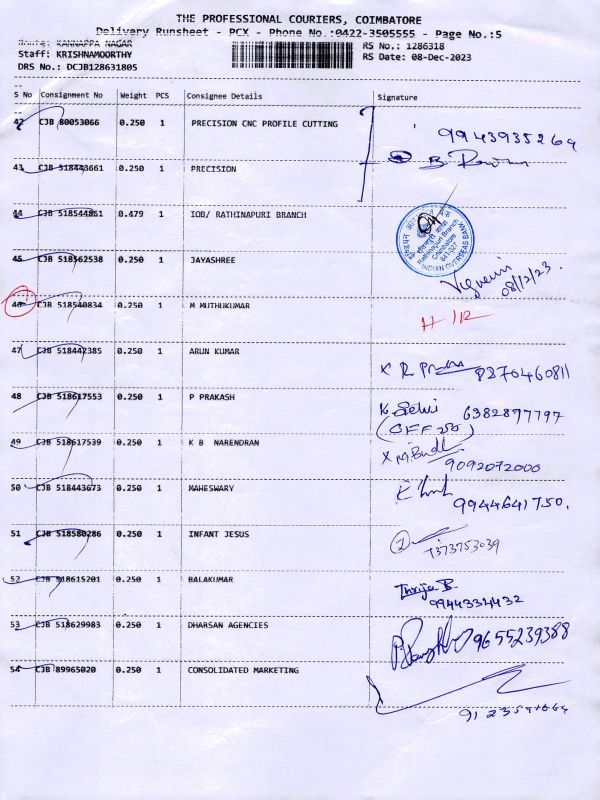 THE PROFESSIONAL COURIERS, COIMBATORE
Delivery Runsheet - PCX - Phone No.:0422-3505555 - Page No.:5
Route: KANNAPPA NAGAR
RS No.: 1286318
Staff: KRISHNAMOORTHY
RS Date: 08-Dec-2023
DRS No.: DCJB128631805
S No Consignment No Weight PCS Consignee Details Signature
42 CJB 80053066 0.250 1 PRECISION CNC PROFILE CUTTING
9943935269
43 CJB 518443661 0.250 1 PRECISION
44 CJB 518544861 0.479 1 IOB/ RATHINAPURI BRANCH
Rathinapuri Branch
Coimbatore
641 027
INDIAN OVERSEAS BANK
45 CJB 518562538 0.250 1 JAYASHREE
08/12/23.
46 CJB 518540834 0.250 1 M MUTHUKUMAR
47 CJB 518442385 0.250 1 ARUN KUMAR
8370460811
48 CJB 518617553 0.250 1 P PRAKASH
K. Selvi 6382877797
49 CJB 518617539 0.250 1 K B NARENDRAN
9092072000
50 CJB 518443673 0.250 1 MAHESWARY
9944641750.
51 CJB 518580286 0.250 1 INFANT JESUS
7373753039
52 CJB 518615201 0.250 1 BALAKUMAR
9944334432
53 CJB 518629983 0.250 1 DHARSAN AGENCIES
9655239388
54 CJB 89965020 0.250 1 CONSOLIDATED MARKETING